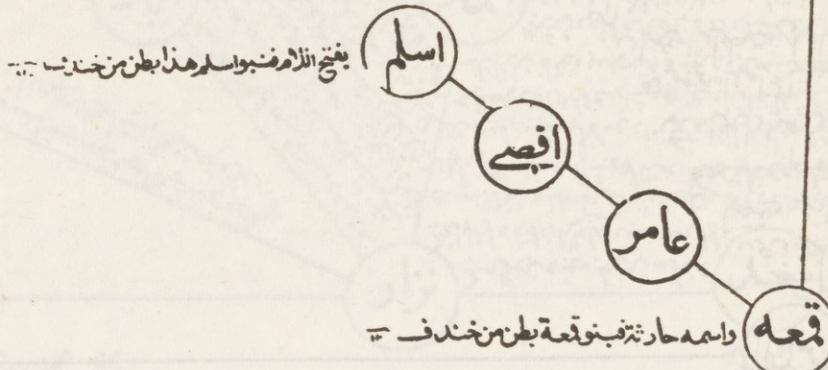 اسلم
بفتح اللام فبنو اسلم هذا بطن من خندف
افصى
عامر
قمعه
واسمه حارثة فبنو قمعة بطن من خندف